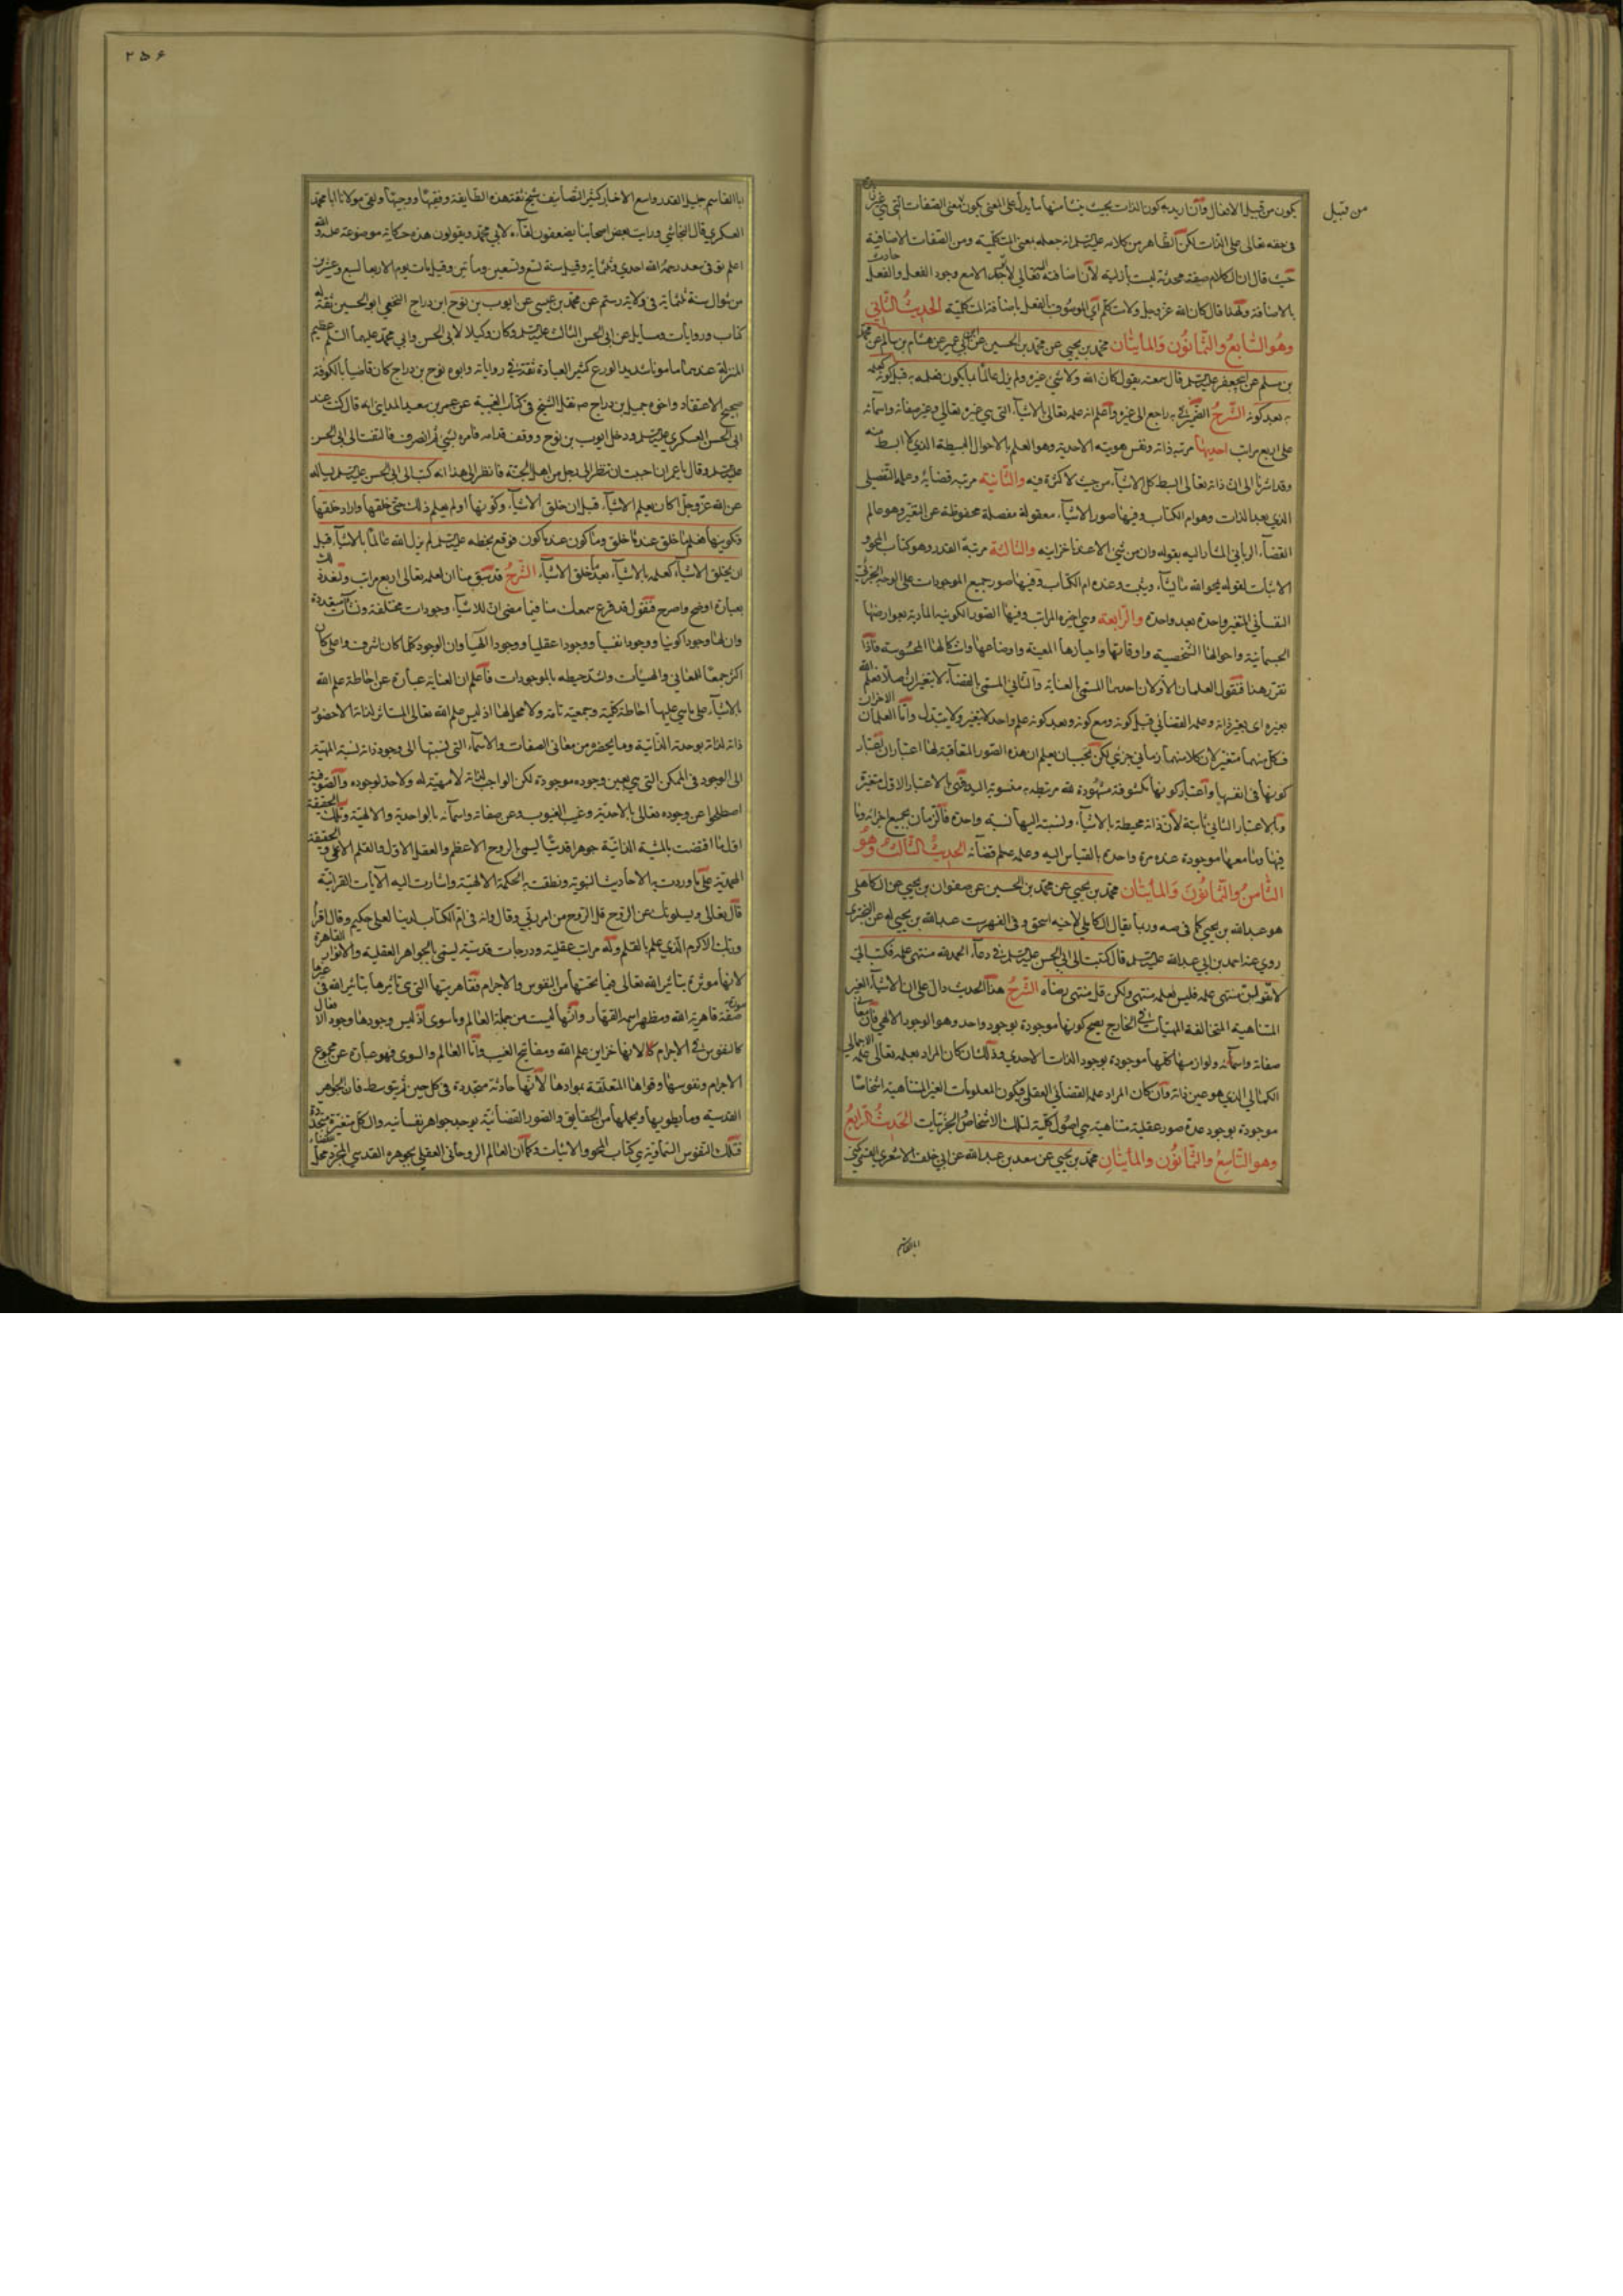 من قبيل
يكون من قبيل الافعال وان اريد به كون الذات بحيث ينشأ منها ما يدل على المعنى يكون معنى الصفات التي هي غير زائدة
في حقه تعالى على الذات لكن الظاهر من كلامه عليه السلام انه جعله بمعنى المتكلمية ومن الصفات الاضافية
حيث قال ان الكلام صفة محدثة ليست بازلية لأن اضافته تعالى لا تتجدد الا مع وجود الفعل والفعل حادث
بالاضافة ولهذا قال كان الله عز وجل ولا متكلم اي الموصوف بالفعل باضافة المتكلمية الحديث الثاني
وهو السابع والثمانون والمأيتان محمد بن يحيى عن محمد بن الحسين عن ابن ابي عمير عن هشام بن سالم عن محمد
بن مسلم عن ابي جعفر عليه السلام قال سمعته يقول كان الله ولا شئ غيره ولم يزل عالما بما يكون فعلمه به قبل كونه كعلمه
به بعد كونه الشرح الضمير في به راجع الى غيره واعلم انه علمه تعالى بالاشياء التي هي غيره تعالى وغير صفاته واسمائه
على اربع مراتب احديها مرتبة ذاته ونفس هويته الاحدية وهو العلم بالاحوال البسيطة الذي لا ابسط منه
وقد اشرنا الى ان ذاته تعالى البسيط كل الاشياء من حيث لا كثرة فيه والثانية مرتبة قضائه وعلمه التفصيلى
الذي بعد الذات وهو ام الكتاب وفيها صور الاشياء معقولة مفصلة محفوظة عن التغير وهو عالم
القضاء الرباني المشار اليه بقوله وان من شئ الا عندنا خزاينه والثالثة مرتبة القدر وهو كتاب المحو و
الاثبات لقوله يمحو الله ما يشاء ويثبت وعنده ام الكتاب وفيها صور جميع الموجودات على الوجه الجزئي
النفساني المتغير واحدة بعد واحدة والرابعة وهي اخيرة المراتب وفيها الصور الكونية المادية بعوارضها
الجسمانية واحوالها الشخصية واوقاتها واحيازها المعينة واوضاعها واشكالها المحسوسة فاذا
تقرر هذا فنقول العلمان الاولان احدهما المسمى بالعناية والثاني المسمى بالقضاء لا يتغيران اصلا فعلم الله
بغيره اى بغير ذاته وعلمه القضائي قبل كونه ومع كونه وبعد كونه علم واحد لا يتغير ولا يتبدل واما العلمان الاخران
فكل منهما متغير لان كلا منهما زماني جزئي لكن يجب ان يعلم ان هذه الصور المتعاقبة لها اعتباران اعتبار
كونها في انفسها واعتبار كونها مكشوفة مشهودة لله مرتبطة به منسوبة اليه وهى بالاعتبار الاول متغيرة
وبالاعتبار الثاني ثابتة لأن ذاته محيطة بالاشياء ونسبته اليها نسبة واحدة فالزمان بجميع اجزائه وما
فيها وما معها موجودة عنده مرة واحدة بالقياس اليه وعلمه علم قضائه الحديث الثالث وهو
الثامن والثمانون والمأيتان محمد بن يحيى عن محمد بن الحسين عن صفوان بن يحيى عن الكاهلى
هو عبدالله بن يحيى كما في صه وربما يقال الكاهلي لاخيه اسحق وفى الفهرست عبدالله بن يحيى له
روى عنه احمد بن ابي عبدالله عليه السلام قال كتبت الى ابي الحسن عليه السلام في دعاء الحمد لله منتهى علمه فكتب الي
لا تقولن منتهى علمه فليس لعلمه منتهى ولكن قل منتهى رضاه الشرح هذا الحديث دال على ان الاشياء الغير
المتناهية المتخالفة المهيات في الخارج يصح كونها موجودة بوجود واحد وهو الوجود الالهي فان معاني
صفاته واسمائه ولوازمها كلها موجودة بوجود الذات الاحدي وذلك ان كان المراد بعلمه تعالى علمه الاجمالي
الكمالي الذي هو عين ذاته وان كان المراد علمه القضائي العقلي فيكون المعلومات الغير المتناهية اشخاصا
موجودة بوجود عدة صور عقلية متناهية هي اصول كلية لتلك الاشخاص الجزئيات الحديث الرابع
وهو التاسع والثمانون والمأيتان محمد بن يحيى عن سعد بن عبدالله عن ابي خلف الاشعري القمي يكنى
ابا القاسم
٢٥۶
ابا القاسم جليل القدر واسع الاخبار كثير التصانيف شيخ ثقة هذه الطايفة وفقيهها ووجيهها ولقى مولانا ابا محمد
العسكري قال النجاشي ورايت بعض اصحابنا يضعفون لقاءه لابي محمد ويقولون هذه حكاية موضوعة عليه والله
اعلم توفى سعد رحمه الله احدى وثلثماية وقيل سنة تسع وتسعين ومأتين وقيل مات يوم الاربعا لسبع وعشرين
من شوال سنة ثلثماية فى ولاية رستم عن محمد بن عيسى عن ايوب بن نوح ابن دراج النخعي ابو الحسين ثقة له
كتاب وروايات ومسايل عن ابى الحسن الثالث عليه السلام وكان وكيلا لابى الحسن وابي محمد عليهما السلام عظيم
المنزلة عندهما مأمونا شديد الورع كثير العبادة ثقة في رواياته وابوه نوح بن دراج كان قاضيا بالكوفة
صحيح الاعتقاد واخوه جميل بن دراج صه نقل الشيخ في كتاب الغيبة عن عمر بن سعيد المدايني انه قال كنت عند
ابى الحسن العسكري عليه السلام ودخل ايوب بن نوح ووقف قدامه فامره بشئ ثم انصرف فالتفت الى ابو الحسن
عليه السلام وقال يا عمر ان احببت ان تنظر الى رجل من اهل الجنة فانظر الى هذا انه كتب الى ابى الحسن عليه السلام يساله
عن الله عز وجل اكان يعلم الاشياء قبل ان خلق الاشياء وكونها او لم يعلم ذلك حتى خلقها واراد خلقها
وتكوينها فعلم ما خلق عندما خلق وما كون عندما كون فوقع بخطه عليه السلام لم يزل الله عالما بالاشياء قبل
ان يخلق الاشياء كعلمه بالاشياء بعد ما خلق الاشياء الشرح قد سبق منا ان لعلمه تعالى اربع مراتب
بعبارة اوضح واصرح فنقول قد قرع سمعك منا فيما مضى ان للاشياء وجودات مختلفة ونشآت متعددة
وان لها وجودا كونيا ووجودا نفسيا ووجودا عقليا ووجودا الهيا وان الوجود كلما كان اشرف واعلى كان
اكثر جمعا للمعاني والمهيات واشد حيطة بالموجودات فاعلم ان العناية عبارة عن احاطة علم الله
بالاشياء على ما هي عليها احاطة كلية وجمعية تامة ولا محل لها اذ ليس علم الله تعالى المستاثر لذاته الا حضور
ذاته لذاته بوحدته الذاتية وما يحضره من معاني الصفات والاسماء التي نسبتها الى وجود ذاته نسبة المهية
الى الوجود في الممكن التى هي بعين وجوده موجودة لكن الواجب لذاته لا مهية له ولا حد لوجوده والصوفية
اصطلحوا عن وجوده تعالى بالاحدية وغيب الغيوب وعن صفاته واسمائه بالواحدية والالهية وتلك الحقيقة
اول ما اقتضت بالمشية الذاتية جوهرا قدسيا يسمى الروح الاعظم والعقل الاول والقلم الاعلى والحقيقة
المحمدية على ما وردت به الاحاديث النبوية ونطقت به الحكمة الالهية واشارت اليه الآيات القرآنية
قال تعالى ويسئلونك عن الروح قل الروح من امر ربي وقال وانه فى ام الكتاب لدينا لعلي حكيم وقال اقرأ
وربك الاكرم الذي علم بالقلم وله مراتب عقلية ودرجات قدسية يسمى بالجواهر العقلية والانوار القاهرة
لانها موثرة بتاثير الله تعالى فيما تحتها من النفوس والاجرام فقاهريتها التى هى تاثيرها بتاثير الله فى غيرها
صفة قاهرية الله ومظهر اسمه القهار وانها ليست من جملة العالم وما سوى اذ ليس وجودها وجود الافعال
كالنفوس في الاجرام كالانها خزاين علم الله ومفاتيح الغيب واما العالم والسوى فهو عبارة عن مجموع
الاجرام ونفوسها وقواها المتعلقة بموادها لأنها حادثة متجددة في كل حين ثم يتوسط فان الجواهر
القدسية وما يطويها ويحملها من الحقايق والصور القضائية يوجد جواهر نفسانيه والكل متغيرة متجددة
فتلك النفوس السماوية هي كتاب المحو والاثبات وكما ان العالم الروحاني العقلي بجوهره القدسي المجرد محل